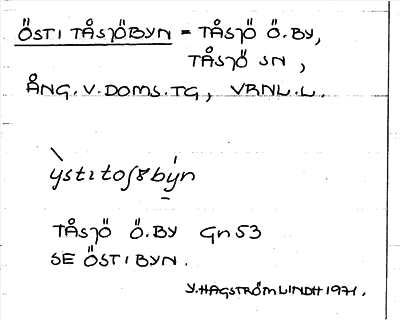 ÖSTI TÅSJÖBYN = TÅSJÖ Ö.BY,
TÅSJÖ SN,
ÅNG.V.DOMS.TG, VRNL.L.
ỳstɩtoʃɞbýn
TÅSJÖ Ö.BY Gn 53
SE ÖSTIBYN.
Y.HAGSTRÖM LINDH 1971.